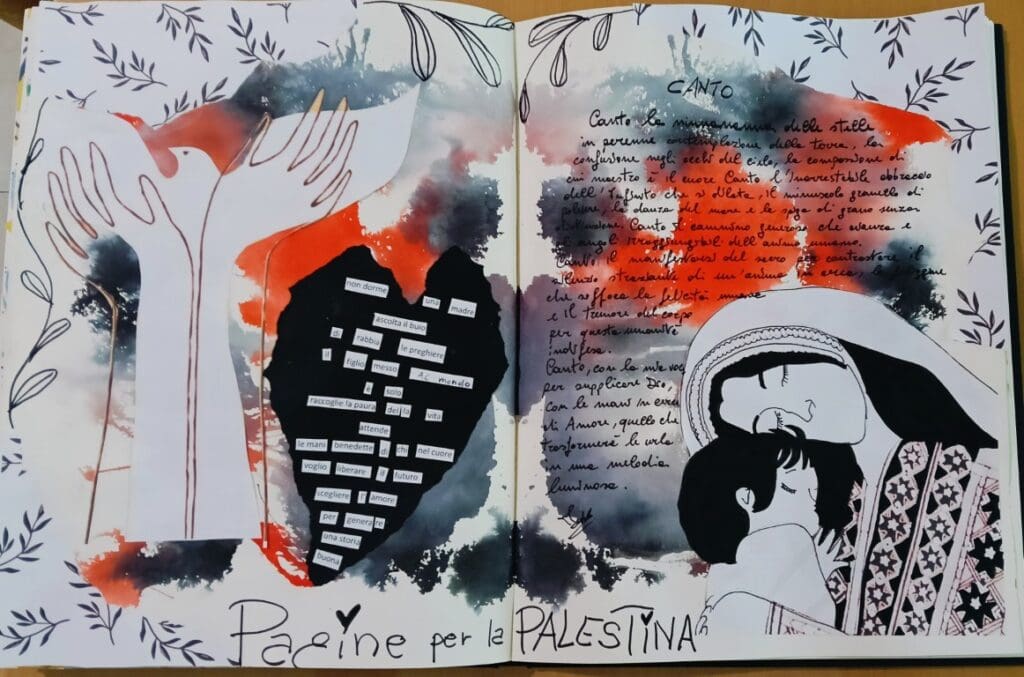 non dorme una madre
ascolta il buio
di rabbia le preghiere
il figlio messo al mondo
è solo
raccoglie la paura della vita
attende
le mani benedette di chi nel cuore
voglio liberare il futuro
scegliere l'amore
per generare
una storia
buona
CANTO
Canto la ninnananna delle stelle
in perenne contemplazione della terra, la
confusione negli occhi del cielo, la compassione di
cui maestro è il cuore. Canto l'inarrestabile abbraccio
dell'Infinito che si dilata, il minuscolo granello di
polvere, la danza del mare e le spiga di grano senza
distinzione. Canto il cammino generoso che avanza e
gli angoli irraggiungibili dell'animo umano.
Canto il manifestarsi del sacro per contrastare il
silenzio straziante di un'anima in
che soffoca la felicità umana
e il tremore del corpo
per questa umanità
indifesa.
Canto, con la mia voce
per supplicare Dio,
con le mani in
di Amore, quello che
trasformerà le urla
in una melodia
luminosa.
Pagine per la PALESTINA